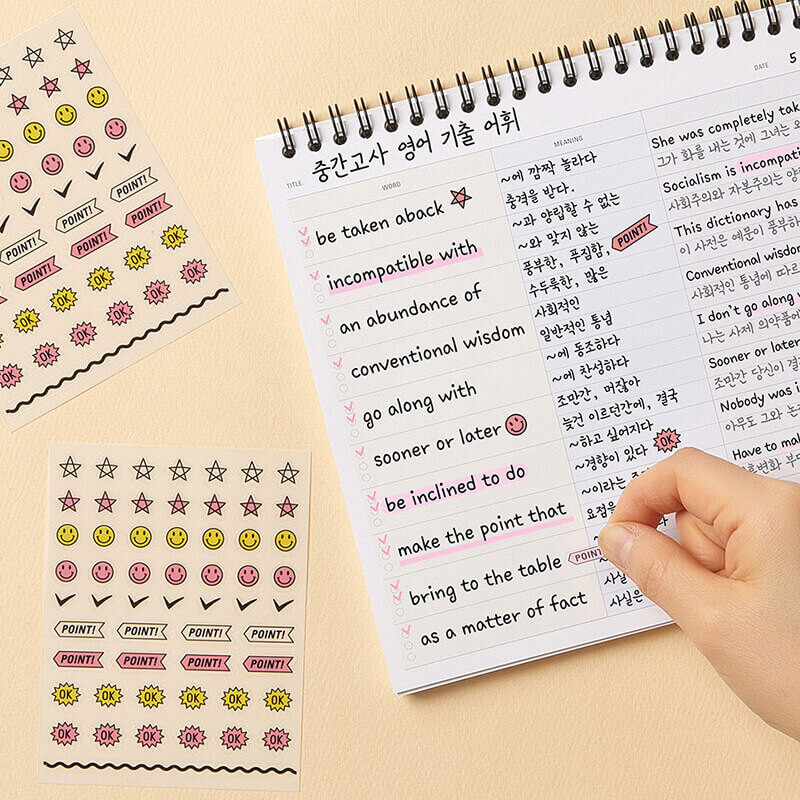 TITLE. 중간고사 영어 기출 어휘
DATE 5
WORD
MEANING
be taken aback
~에 깜짝 놀라다
충격을 받다.
She was completely tak
그가 화를 내는 것에 그녀는
incompatible with
~과 양립할 수 없는
~와 맞지 않는
Socialism is incompati
사회주의와 자본주의는 양
an abundance of
풍부한, 푸짐함,
수두룩한, 많은
POINT!
This dictionary has
이 사전은 예문이 풍부하
conventional wisdom
사회적인
일반적인 통념
Conventional wisdo
사회적인 통념에 따르
go along with
~에 동조하다
~에 찬성하다
I don't go along
나는 사제 의약품에
sooner or later
조만간, 머잖아
늦건 이르던간에, 결국
Sooner or later
조만간 당신이 결
be inclined to do
~하고 싶어지다
~경향이 있다
OK
Nobody was i
아무도 그와 논
make the point that
~이라는
요점을
Have to mal
기후변화 부
bring to the table
POINT
as a matter of fact
사실
사실은
POINT! POINT!
POINT! POINT! POINT!
OK OK OK OK OK
OK OK OK OK OK OK
POINT! POINT! POINT! POINT!
POINT! POINT! POINT! POINT!
OK OK OK OK OK OK
OK OK OK OK OK OK